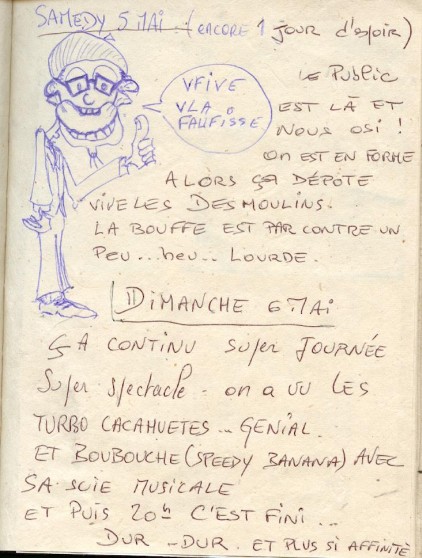 SAMEDY 5 MAI : (ENCORE 1 JOUR d'espoir)
VFIVE
VLA
FAUFISSE
Le Public
EST LÀ ET
NOUS OSI !
On EST EN FORME
ALORS ÇA DÉPOTE
VIVE LES DESMOULINS.
LA BOUFFE EST PAR CONTRE UN
Peu... heu... LOURDE.
DIMANCHE 6 MAI
ÇA CONTINU Super JOURNÉE
Super spectacle - on A VU LES
TURBO CACAHUETES... GENIAL.
ET BOUBOUCHE (SPEEDY BANANA) AVEC
SA SCIE MUSICALE
ET PUIS 20h C'EST FINI...
DUR - DUR. ET PLUS SI AFFINITÉ